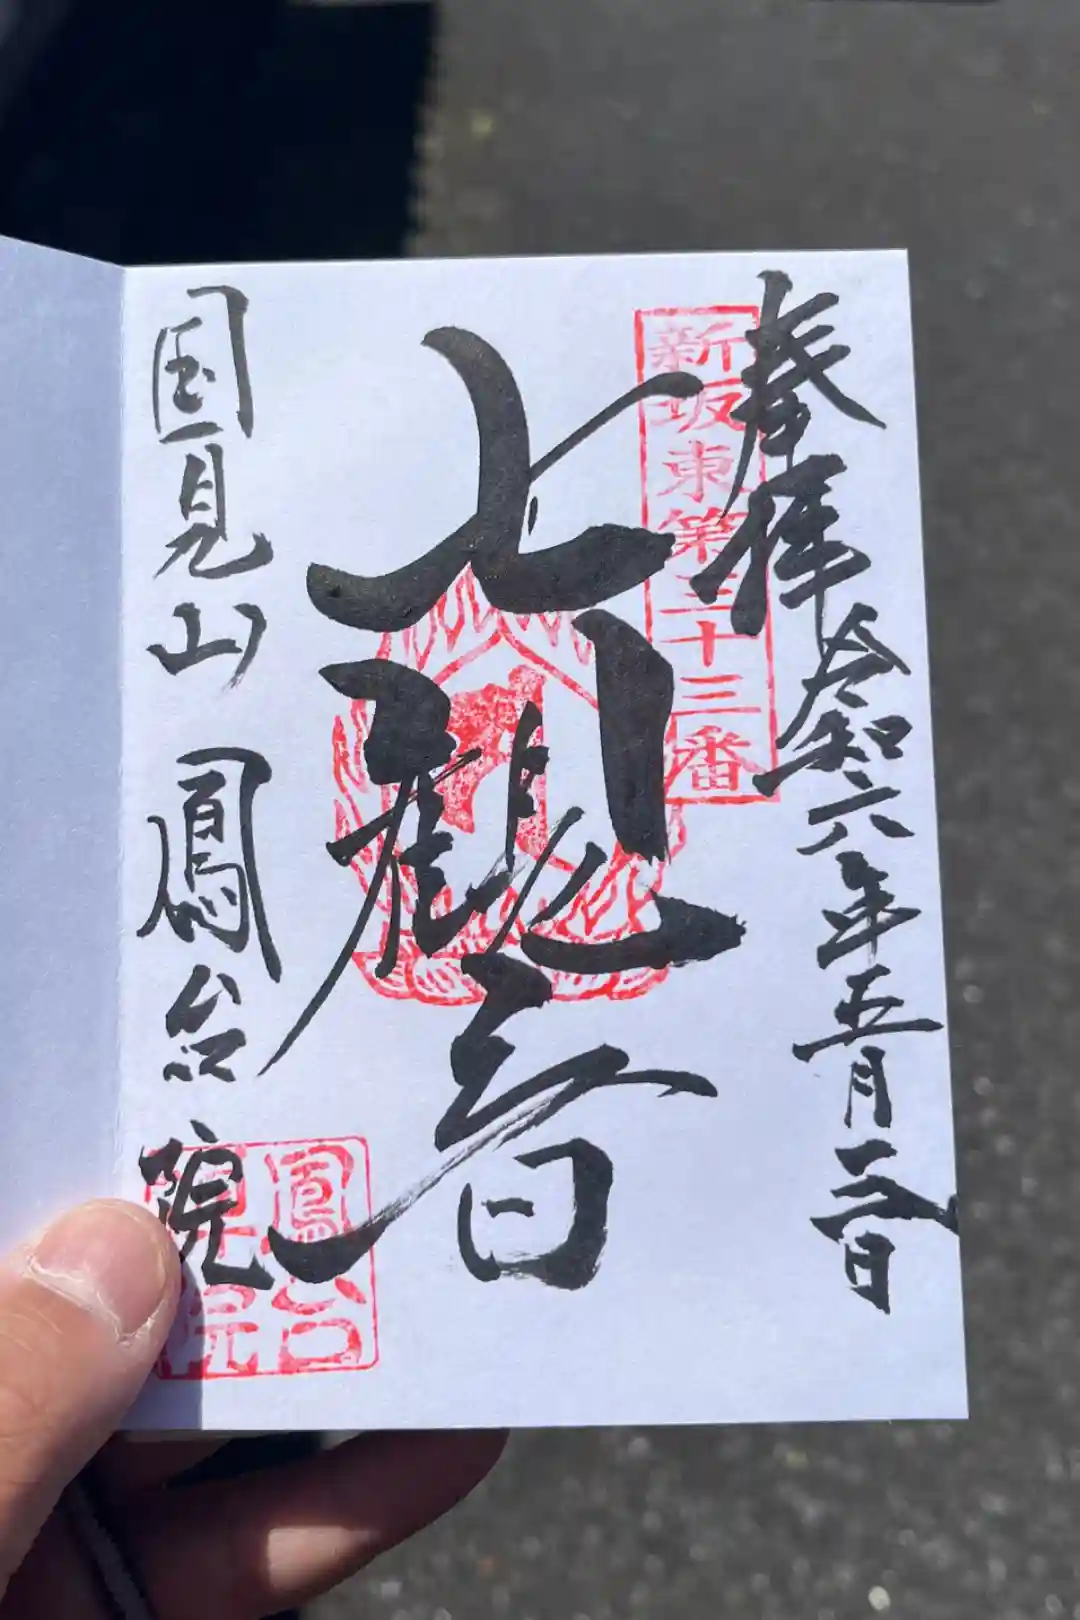 奉拝 令和六年五月三日
新坂東第三十三番
七観音
国見山 鳳台院
鳳台院